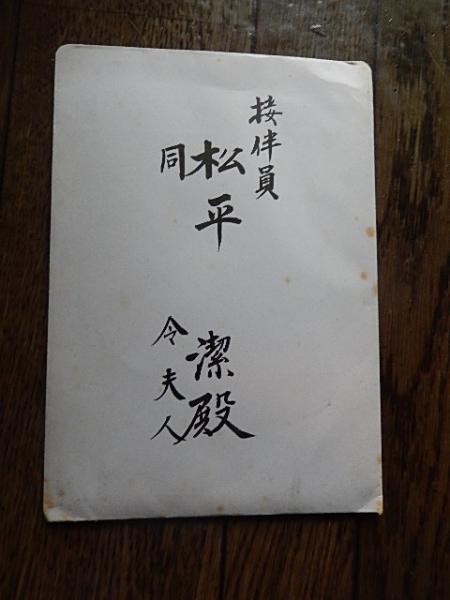 接伴員
松平潔殿
同令夫人